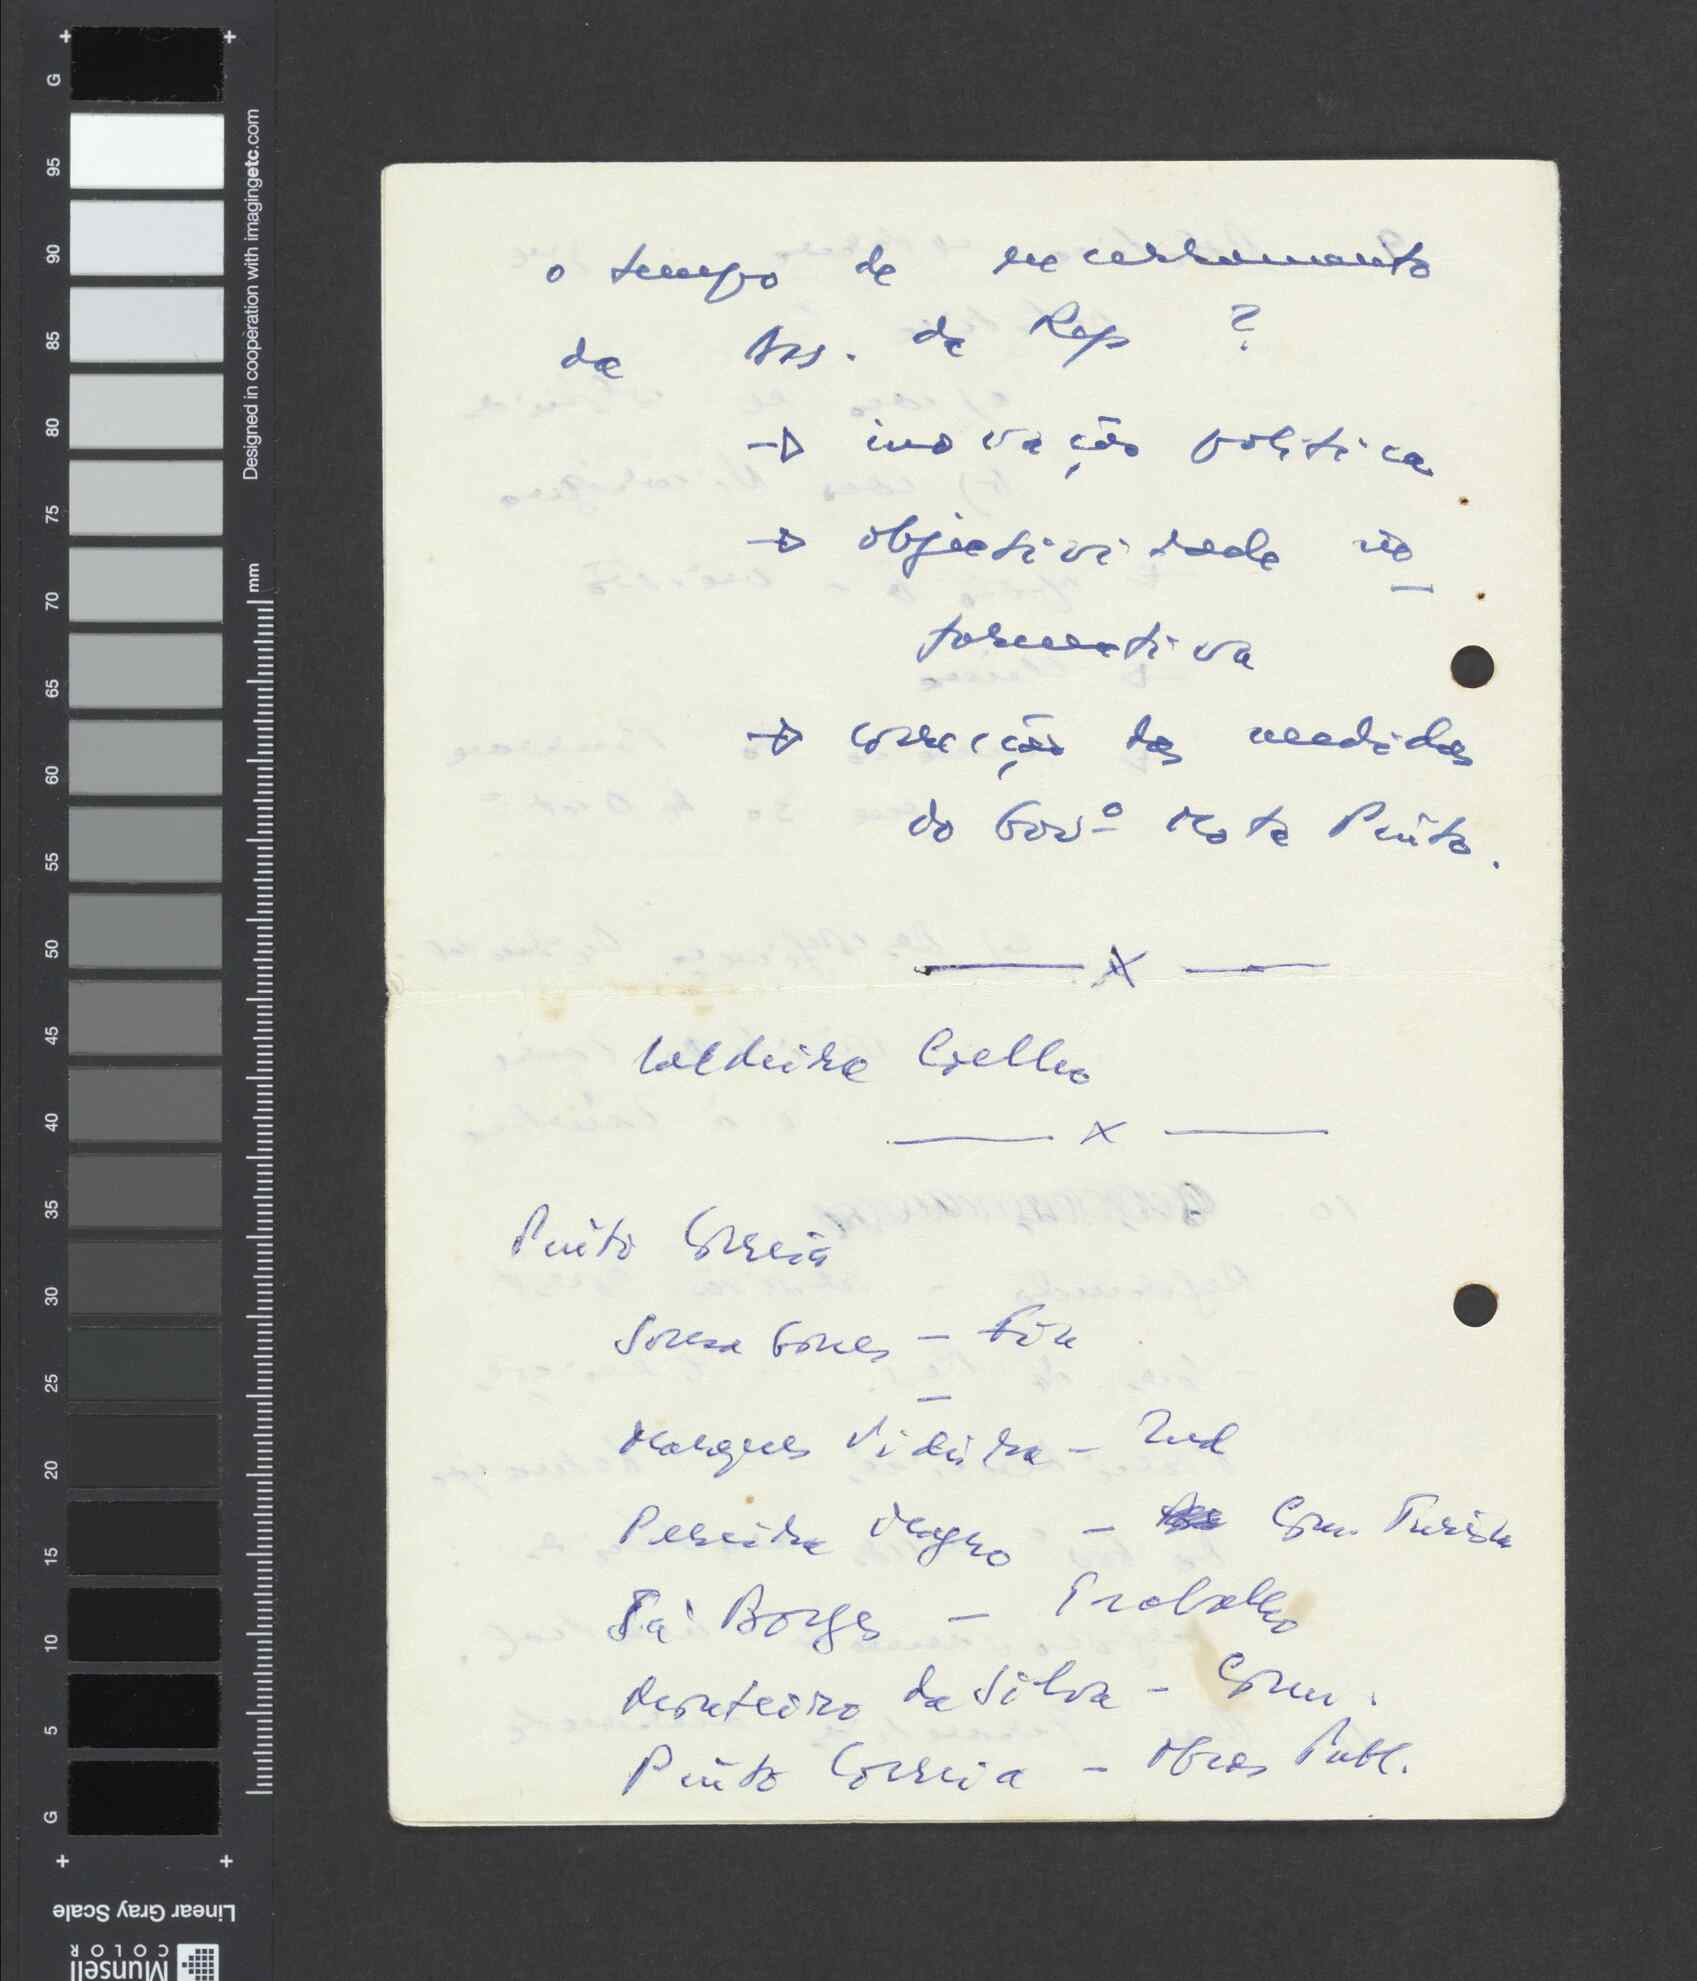 G
95
90
85
80
75
70
65
60
55
50
45
40
35
30
25
20
15
10
5
G
Designed in cooperation with imagingetc.com
mm
Linear Gray Scale
Munsell
COLOR
o tempo de encerramento
da Ass. da Rep ?
→ inovação política
→ objectividade in
formativa
→ correcção das medidas
do Govº Mota Pinto.
— x —
Caldeira Coelho
— x —
Pinto Correia
Sousa Gomes – Fin
Marques Videira – Ind
Pereira Magro – Com. Turism
Sá Borges – Trabalho
Monteiro da Silva – Com.
Pinto Correia – Obras Publ.